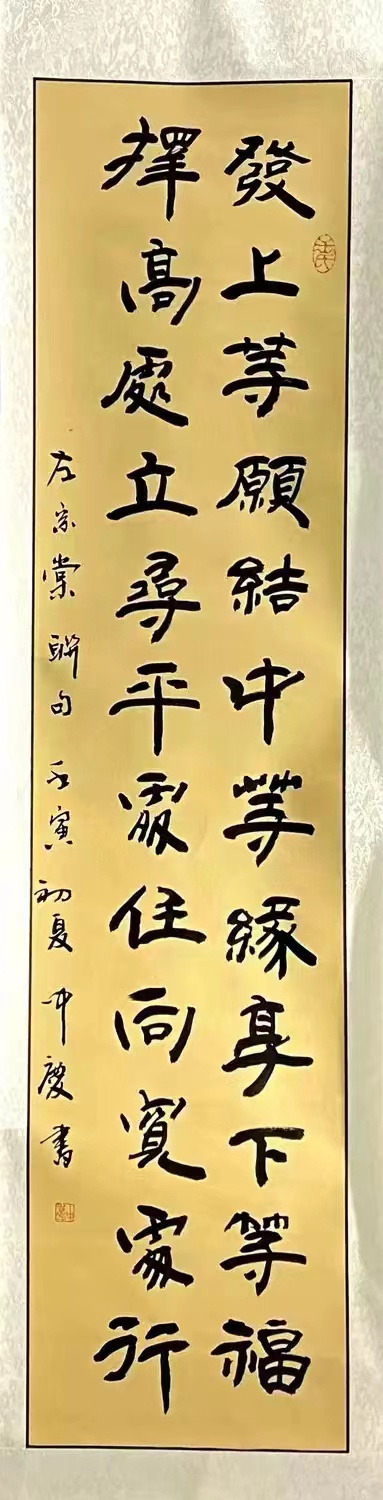 發上等願結中等緣享下等福
擇高處立尋平處住向寬處行
左宗棠聯句壬寅初夏中慶書
王氏